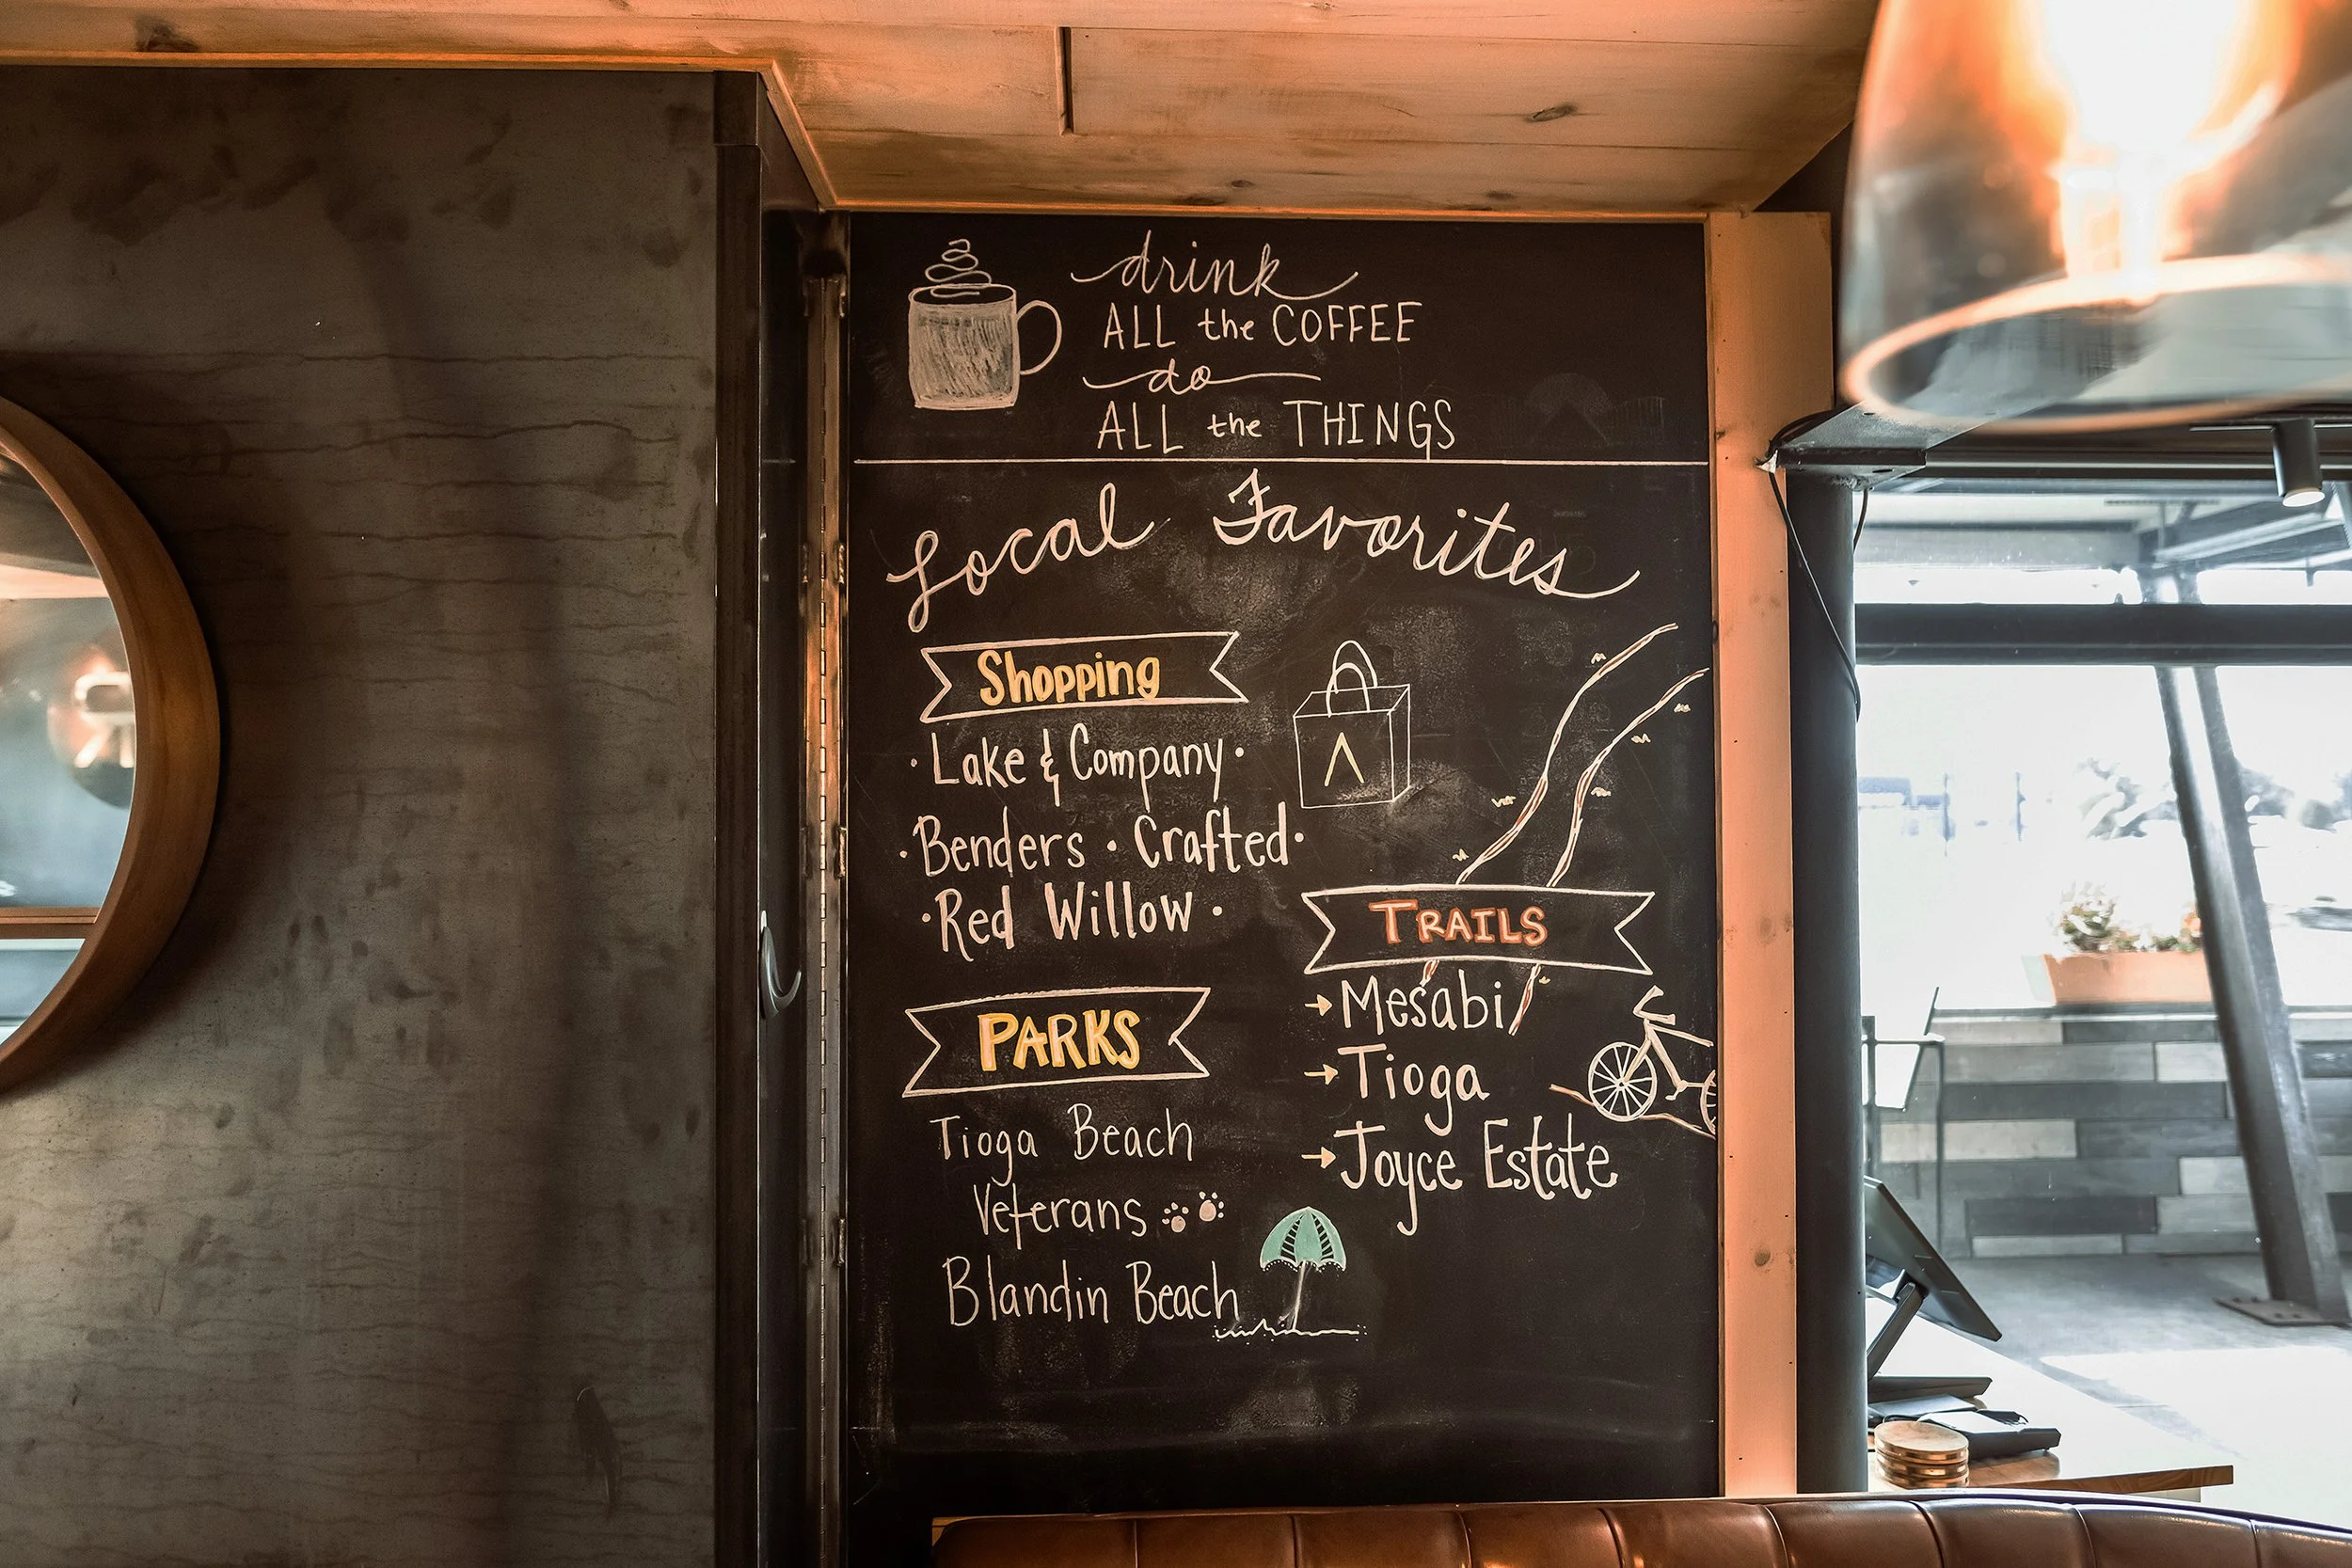 drink
ALL the COFFEE
do
ALL the THINGS
Local Favorites
Shopping
· Lake & Company ·
· Benders · Crafted ·
· Red Willow ·
PARKS
Tioga Beach
Veterans
Blandin Beach
TRAILS
→ Mesabi
→ Tioga
→ Joyce Estate